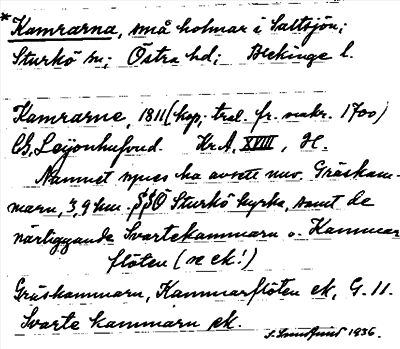 * Kamrarna, små holmar i Saltsjön;
Sturkö sn; Östra hd; Blekinge l.
Kamrarne, 1811 (kop; trol. fr. orakr. 1700)
C.G. Leijonhufvud. Kr.A. XVIII, H.
Namnet synes ha avsett nuv. Gräskam-
maren, 3,9 km. SSÖ Sturkö kyrka, samt de
närliggande Svartekammaren o. Kammar
flöten (se ek!)
Gräskammaren, Kammarflöten ek, G. 11.
Svarte kammaren ek.
1936.